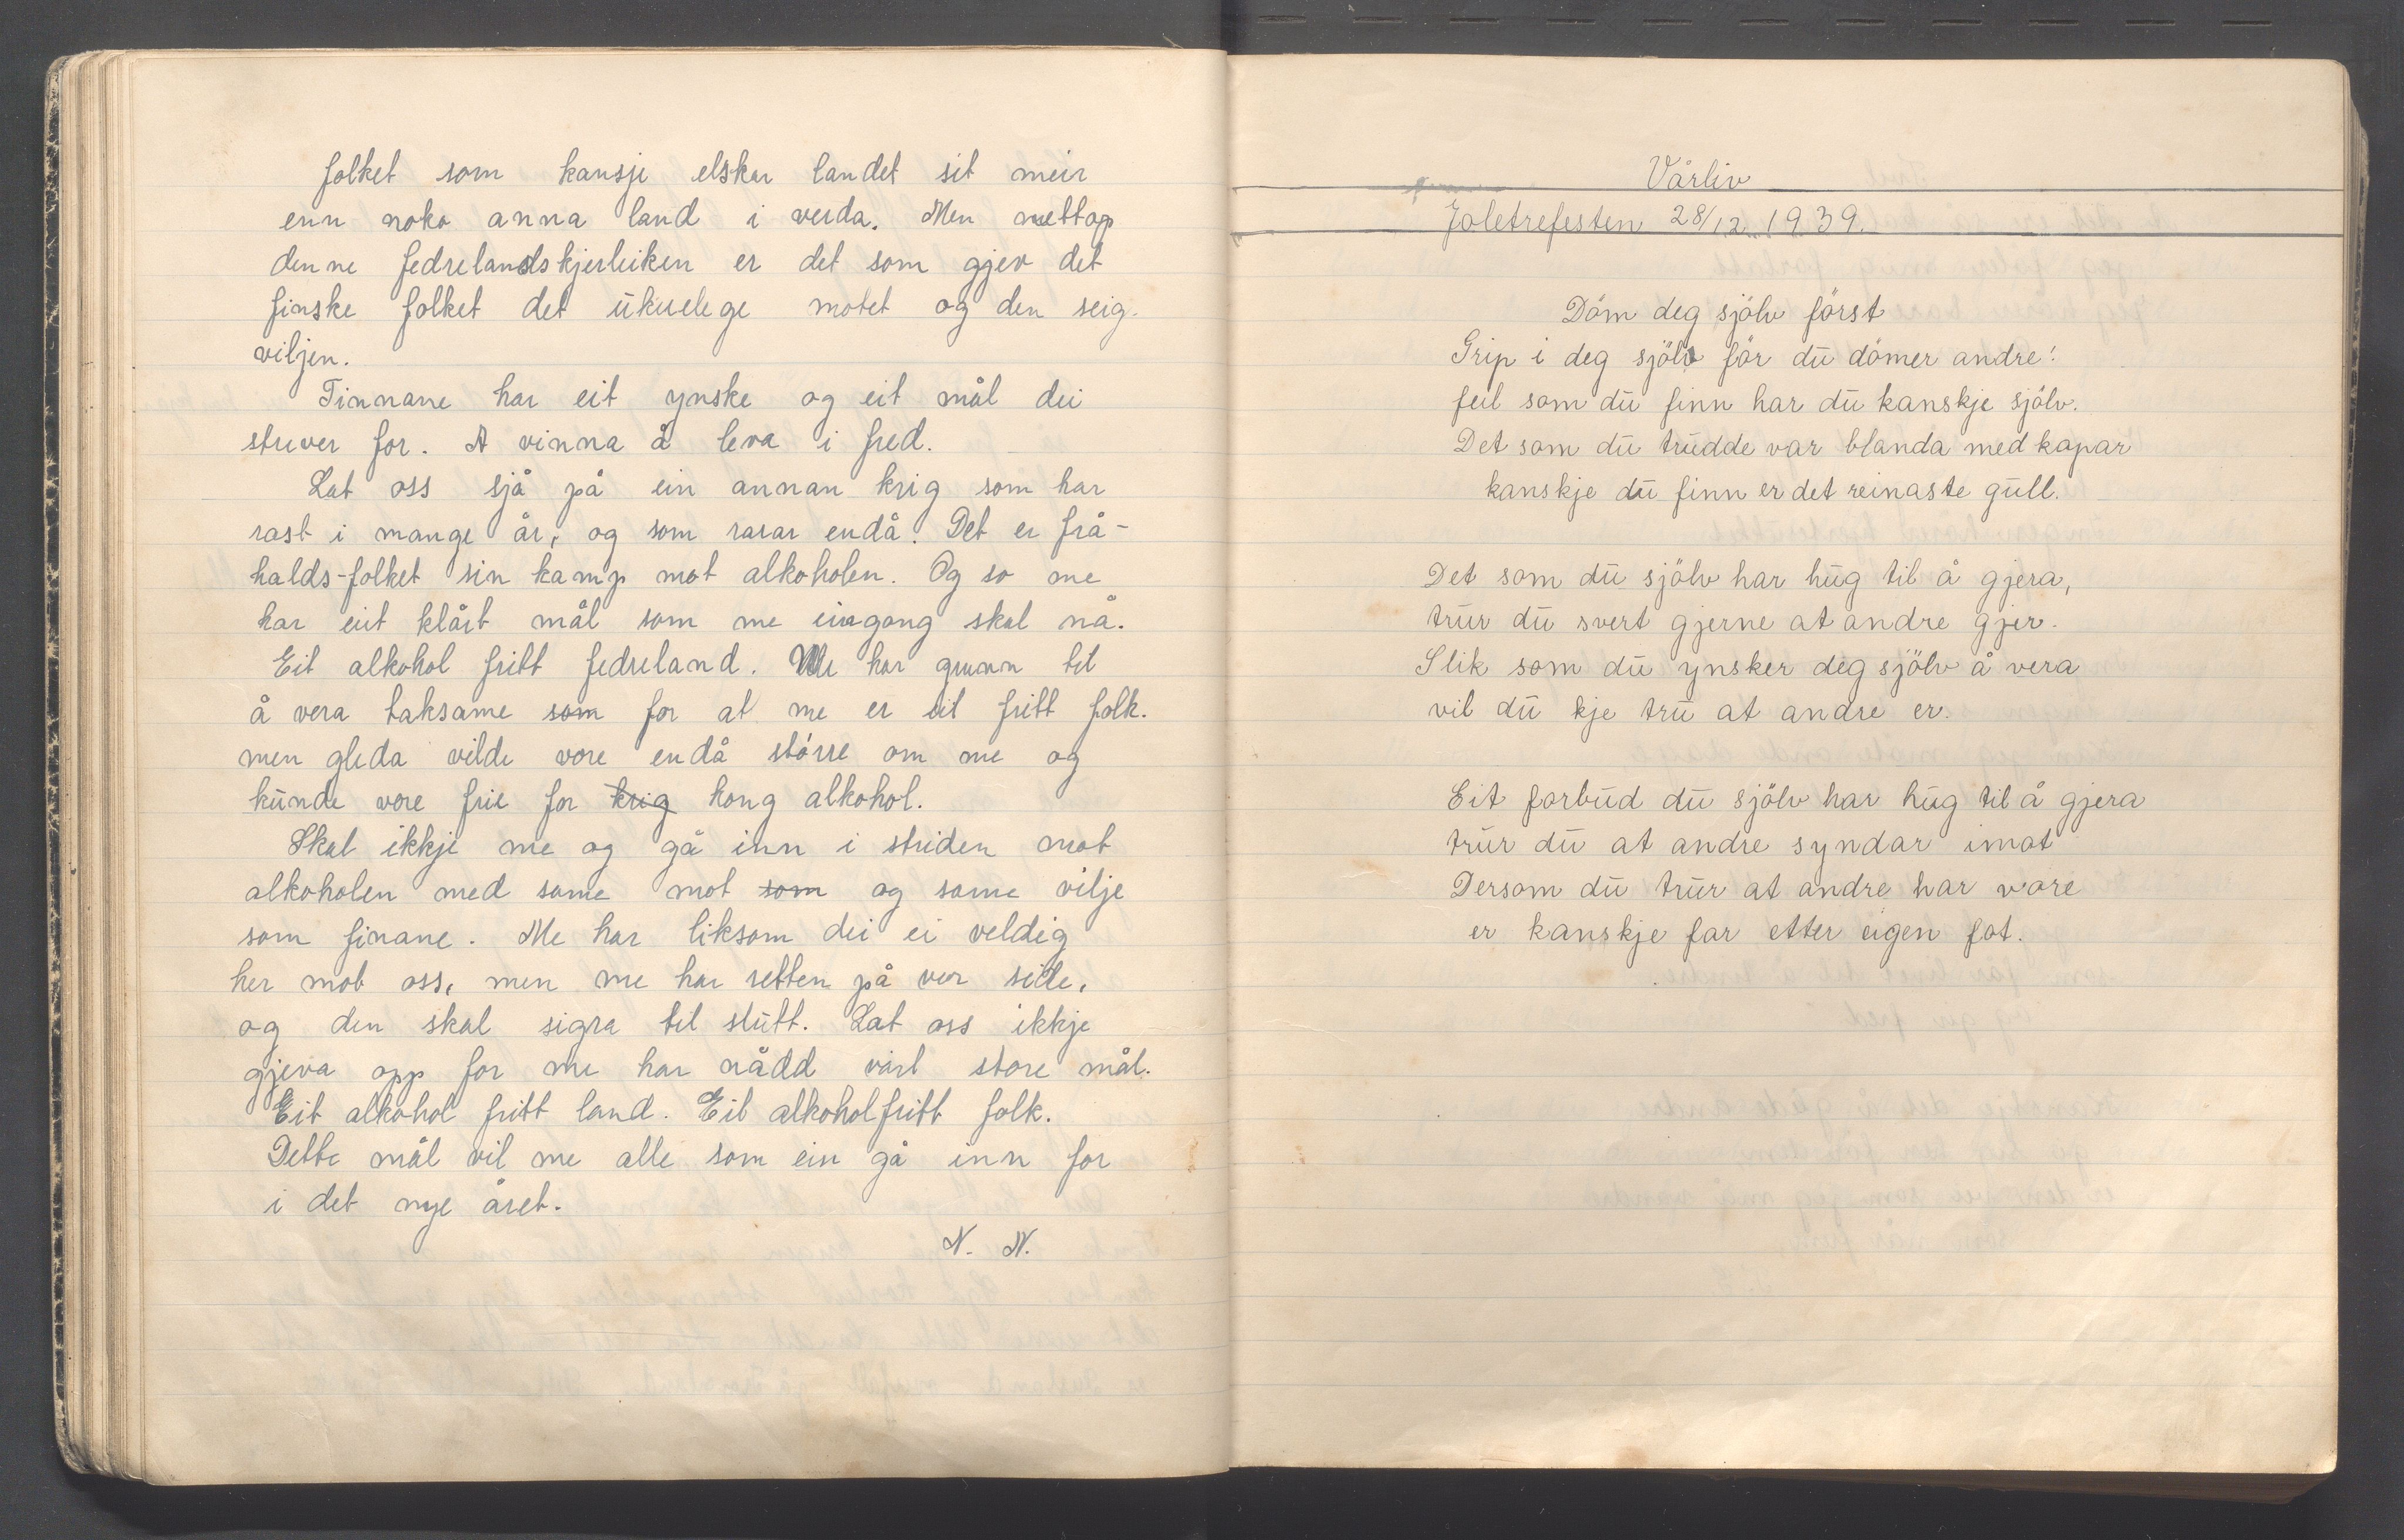 folket som kansje elskar landet sit meir
enn noko anna land i verda. Men nettop
denne fedrelandskjerleiken er det som gjev det
finske folket det ukuelege motet og den seig-
viljen.
Finnane har eit ynske og eit mål dei
strever for. A vinna å leva i fred.
Lat oss sjå på ein annan krig som har
rast i mange år, og som rasar endå. Det er frå-
halds-folket sin kamp mot alkoholen. Og so me
har eit klårt mål som me eingang skal nå.
Eit alkohol fritt fedreland. Me har grunn til
å vera taksame som for at me er eit fritt folk.
men gleda vilde vore endå større om me og
kunde vore frie for krig kong alkohol.
Skal ikkje me og gå inn i striden mot
alkoholen med same mot som og same vilje
som finane. Me har liksom dei ei veldig
her mot oss, men me har retten på vor side,
og den skal sigra til slutt. Lat oss ikkje
gjeva opp for me har nådd vårt store mål.
Eit alkohol fritt land. Eit alkoholfritt folk.
Dette mål vil me alle som ein gå inn for
i det nye året.
N. N.
Vårliv
Joletrefesten 28/12 1939.
Döm deg sjölv först
Grip i deg sjölv för du dömer andre!
feil som du finn har du kanskje sjölv.
Det som du trudde var blanda med kopar
kanskje du finn er det reinaste gull.
Det som du sjölv har hug til å gjera,
trur du svert gjerne at andre gjer.
Slik som du ynsker deg sjölv å vera
vil du kje tru at andre er.
Eit forbud du sjölv har hug til å gjera
trur du at andre syndar imot
Dersom du trur at andre har vore
er kanskje far etter eigen fot.